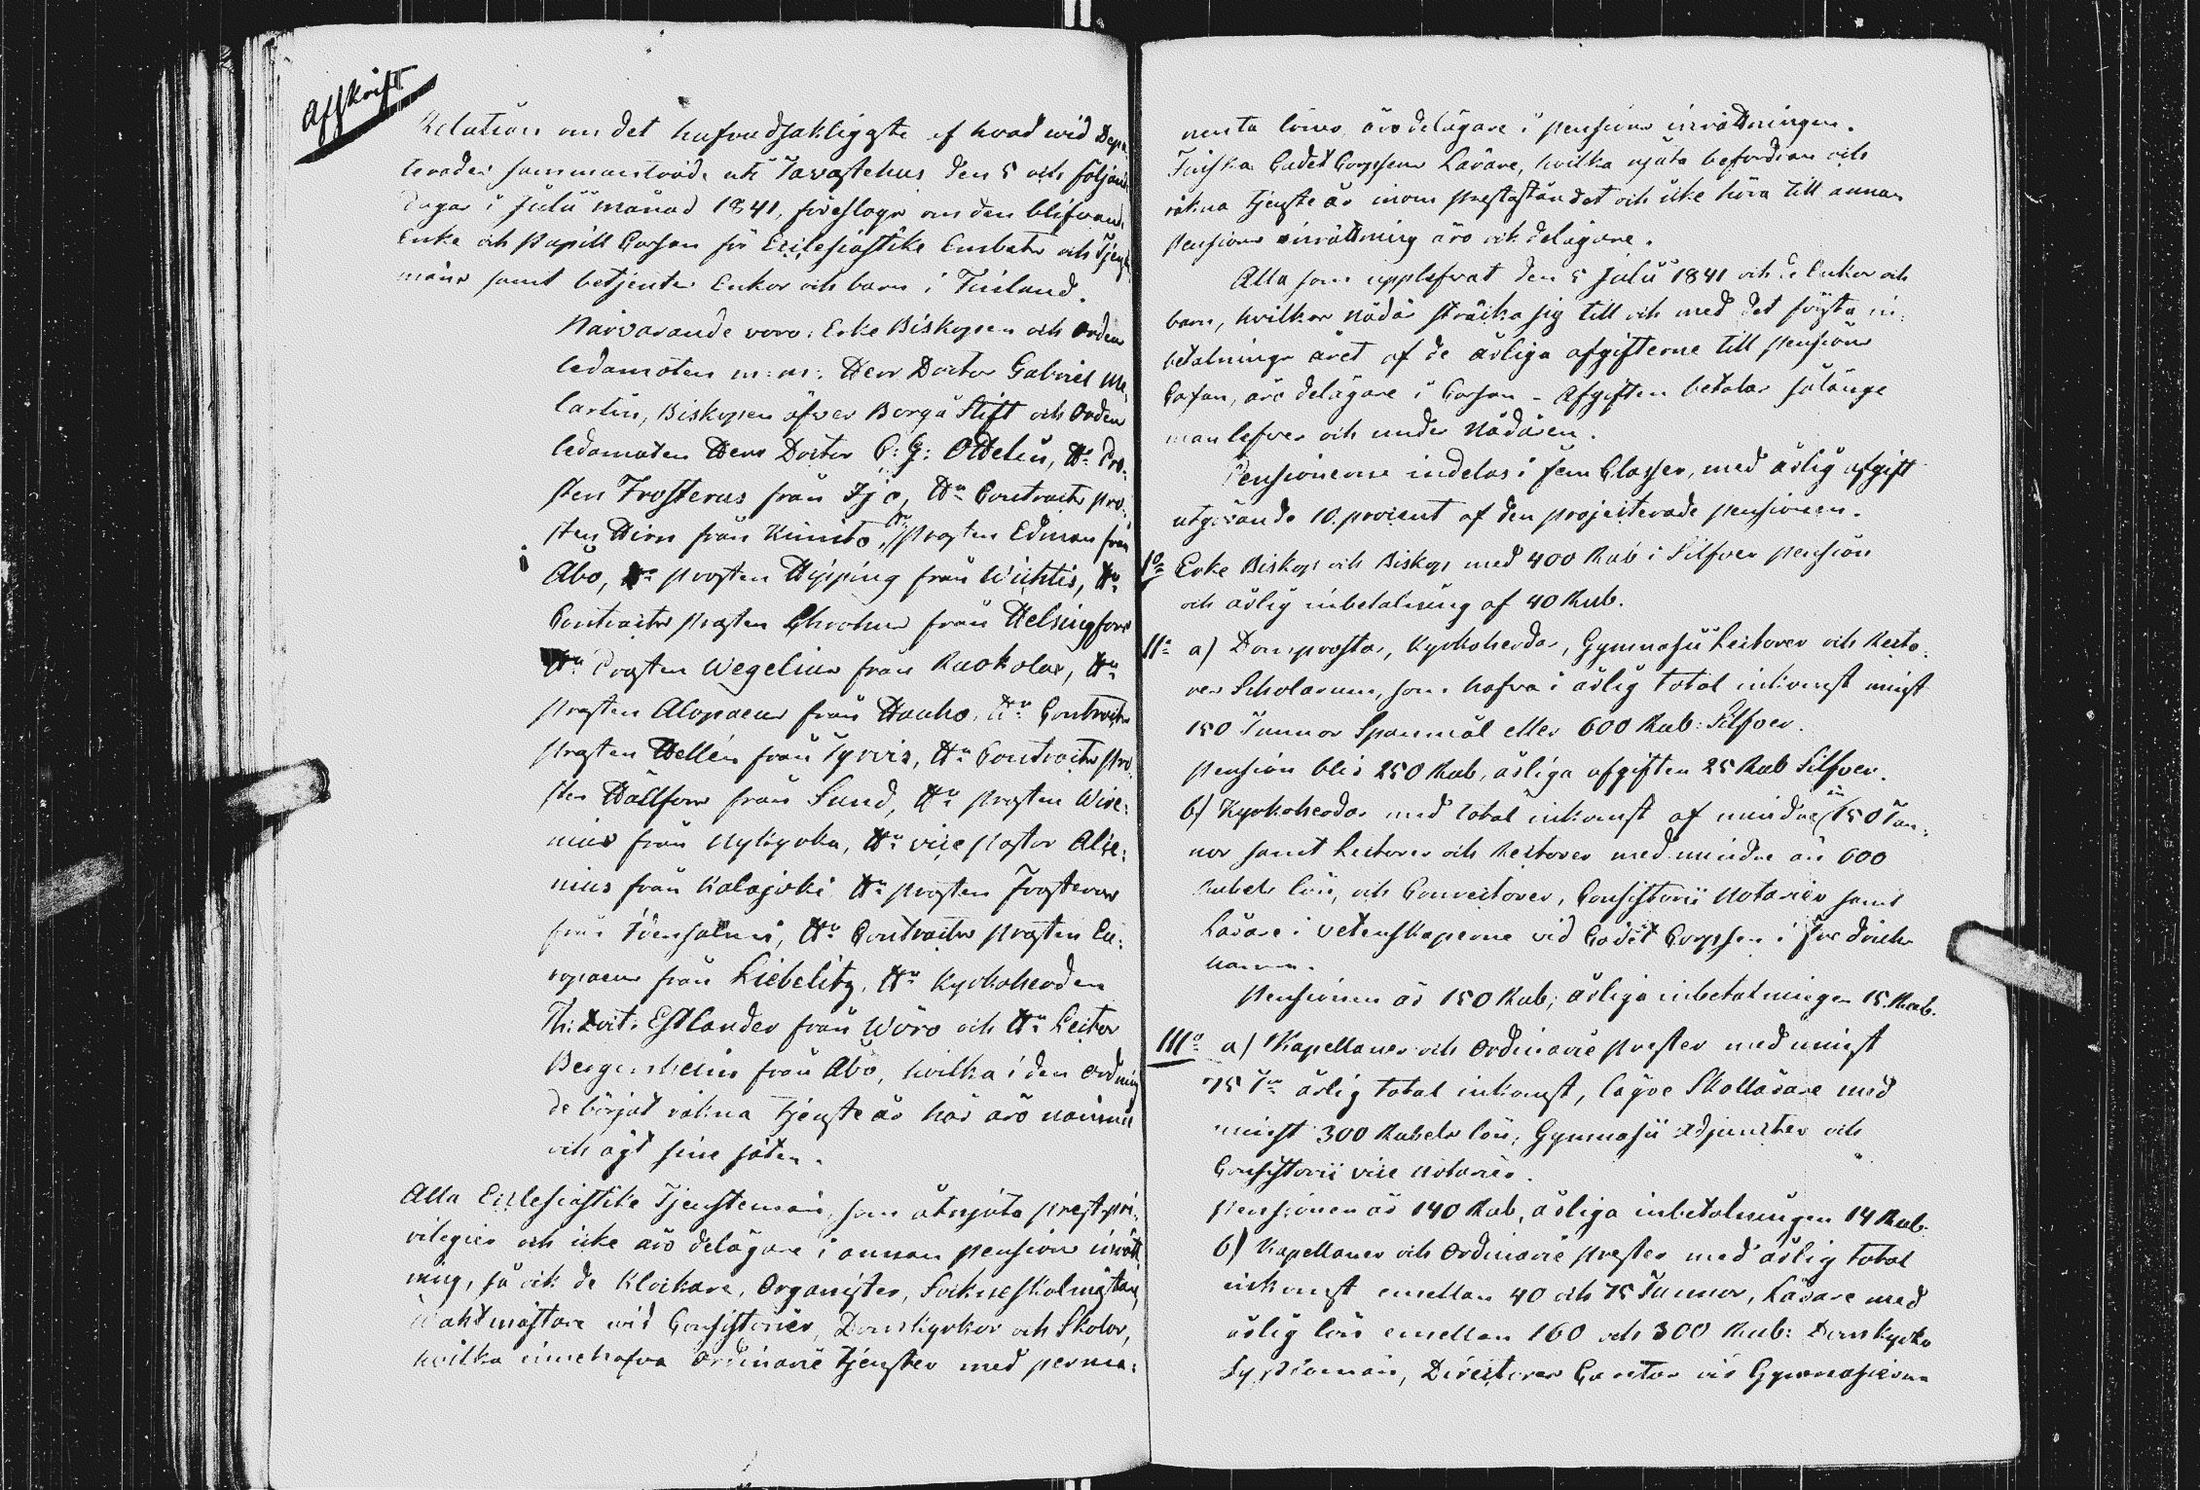 Afskrift
Relation om det hufvudsakligste af hvad wid Depu-
terades sammanträde uti Tavastehus den 5 och följande
dagar i Julii månad 1841, föreslogs om den blifvande
Enke och Pupill Cassan för Ecclesiastike Embets och Tjenste
mäns samt betjentes Enkor och barn i Finland.
Närvarande voro: Erke Biskopen och Ordens
ledamoten m: m: Herr Doctor Gabriel Me-
lartin, Biskopen öfver Borgå Stift och Ordens
ledamoten Herr Doctor C: G: Ottelin, Hr Pro-
sten Frosterus från Ijo, Hr Contracts pro-
sten Hirn från Kimito, Hr prosten Edman från
Åbo, Hr prosten Hipping från Wichtis, Hr
Contracts prosten Chrohns från Helsingfors
Hr Prosten Wegelius från Ruokolax, Hr
prosten Alopaeus från Hauho, Hr Contracts
prosten Hellén från Tyrvis, Hr Contracts pro-
sten Hällfors från Sund, Hr prosten Wire-
nius från Nykyrka, Hr vice pastor Alce-
nius från Kalajoki Hr prosten Frosterus
från Idensalmi, Hr Contracts prosten Eu-
ropaeus från Liebelitz, Hr Kyrkoherden
Th: Doct: Estlander från Wörå och Hr Lector
Bergenheim från Åbo, hvilka i den ordning
de börjat räkna tjenste år här äro nämnde
och ägt sine säten.
Alla Ecclesiastike Tjenstemän, som åtnjuta prest pri-
vilegier och icke äro delägare i annan pensions inrätt-
ning, så ock de Klockare, Organister, Sockneskolmästare,
Waktmästare vid Consistorier, Domkyrkor och Skolor,
hvilka innehafva Ordinarie tjenster med perma-
nenta löner, äro delägare i pensions inrättningen.
Finska Cadet Corpsens Lärare, hvilka njuta befordran och
räkna tjenste år inom preståndet och icke höra till annan
pensions inrättning äro ock delägare.
Alla som upplefvat den 5 Julii 1841 och de Enkor och
barn, hvilkas nådår sträcka sig till och med det första in-
betalnings året af de årliga afgifterne till pensions
Cassan, äro delägare i Cassan - Afgiften betalas sålänge
man lefver och under Nådåren.
Pensionerne indelas i fem Classer, med årlig afgift
utgörande 10. procent af den projecterade pensionen.
1o Erke Biskop och Biskop med 400 Rub i Silfver pension
och årlig inbetalning af 40 Rub.
IIo a) Domprostar, Kyrkoherdar, Gymnasii Lectorer och Recto-
res Scholarum, som hafva i årlig total inkomst minst
150 Tunnor Spanmål eller 600 Rub: Silfver.
pension blir 250 Rub, årliga afgiften 25 Rub Silfver.
b) Kyrkoherdar med total inkomst af mindre än 150 Tun-
nor samt Lectorer och Rectorer med mindre än 600
Rubels lön, och Conrectorer, Consistorii Notarier samt
Lärare i vetenskaperne vid Cadet Corpsen i Fredrichs
hamn.
Pensionen är 150 Rub; årliga inbetalningen 15. Rub.
IIIo a) Kapellaner och Ordinarie prester med minst
75 Tr årlig total inkomst, lägre Skollärare med
minst 300 Rubels lön, Gymnasii Adjuncter och
Consistorii vice Notarier.
pensionen är 140 Rub, årliga inbetalningen 14 Rub.
b) Kapellaner och Ordinarie prester med årlig total
inkomst emellan 40 och 75 Tunnor, Lärare med
årlig lön emellan 160 och 300 Rub: Domkyrko
Sysslomän, Directores Cantus vid Gymnasierna